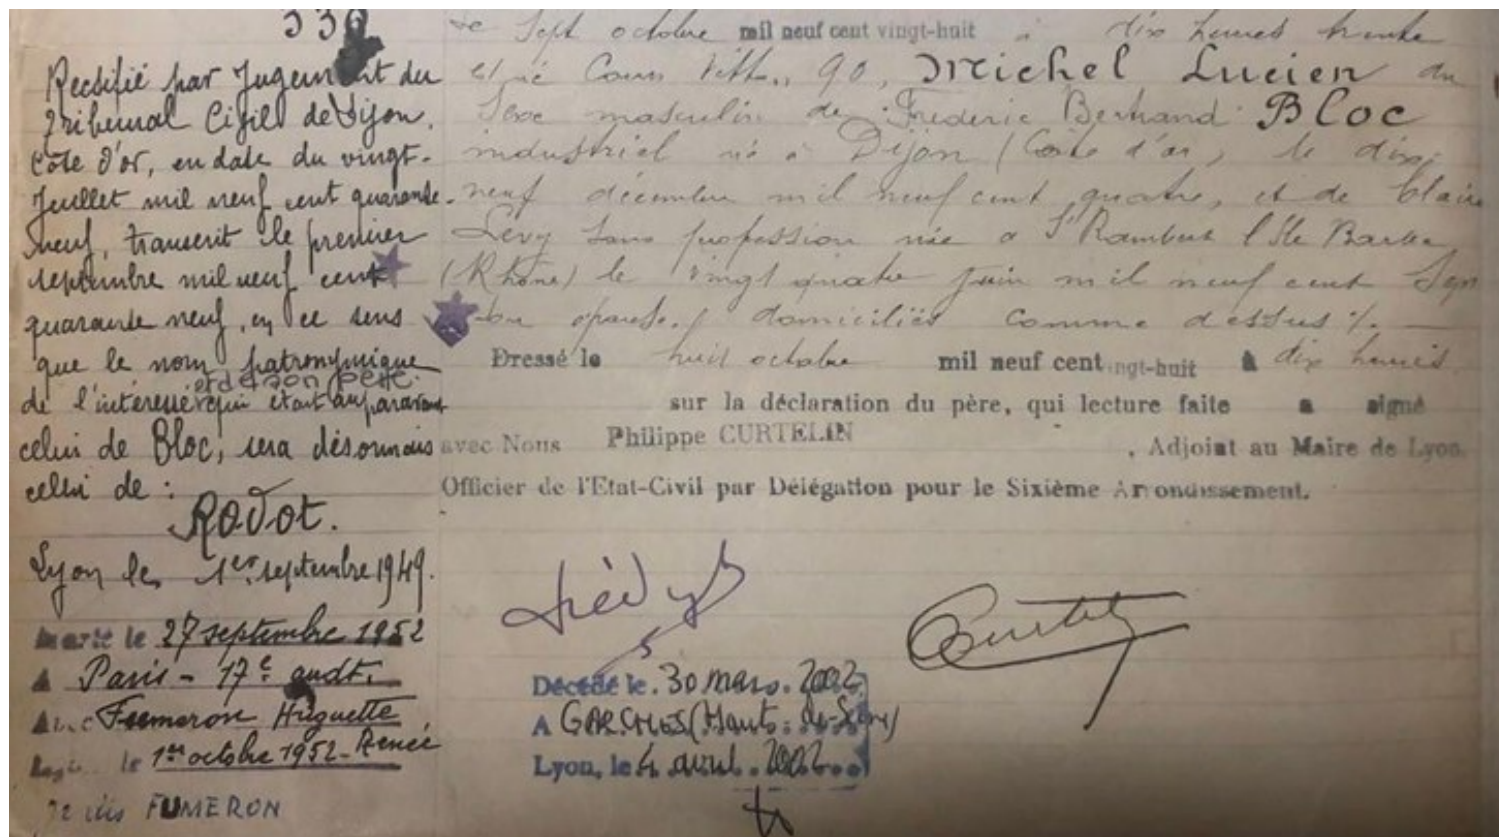 Rectifié par Jugement du
Tribunal Civil de Dijon.
Côte d'or, en date du vingt-
Juillet mil neuf cent quarante-
neuf, transcrit le premier
septembre mil neuf cent
quarante neuf, en ce sens
que le nom patronymique
et de son père
de l'intéressé qui était auparavant
celui de Bloc, sera désormais
celui de :
Rodot.
Lyon le 1er septembre 1949.
marié le 27 septembre 1952
A Paris - 17e arrdt.
Avec Fumeron Huguette
le 1er octobre 1952 - Renée
FUMERON
Le Sept octobre mil neuf cent vingt-huit à dix heures trente
est né Cours Vitton, 90, Michel Lucien du
Sexe masculin de Frédéric Bertrand Bloc
industriel né à Dijon (Côte d'or) le dix
neuf décembre mil neuf cent quatre, et de Claire
Levy sans profession née à St Rambert l'Ile Barbe
(Rhône) le vingt quatre juin mil neuf cent Sept
son épouse, domiciliés comme dessus %. —
Dressé le huit octobre mil neuf cent vingt-huit à dix heures
sur la déclaration du père, qui lecture faite a signé
avec Nous Philippe CURTELIN , Adjoint au Maire de Lyon.
Officier de l'Etat-Civil par Délégation pour le Sixième Arrondissement.
Décédé le 30 mars 2002
A GARCHES (Hauts-de-Seine)
Lyon, le 4 avril 2002